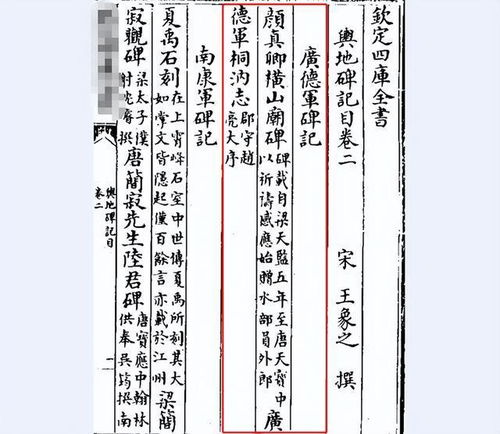 欽定四庫全書
輿地碑記目卷二 宋 王象之 撰
廣德軍碑記
顔真卿橫山廟碑 碑載自梁天監五年至唐天寶中 以祈禱感應始贈水部員外郎 廣
德軍桐汭志 郡守趙 亮大序
南康軍碑記
夏禹石刻 在上霄峰石室中世傳夏禹所刻其大 如掌文皆隱起僅百餘言亦載於江州 梁簡
寂觀碑 梁太子僕 射沈 撰 唐簡寂先生陸君碑 唐寶應中翰林 供奉吳筠撰南
輿地碑記目
卷二
一